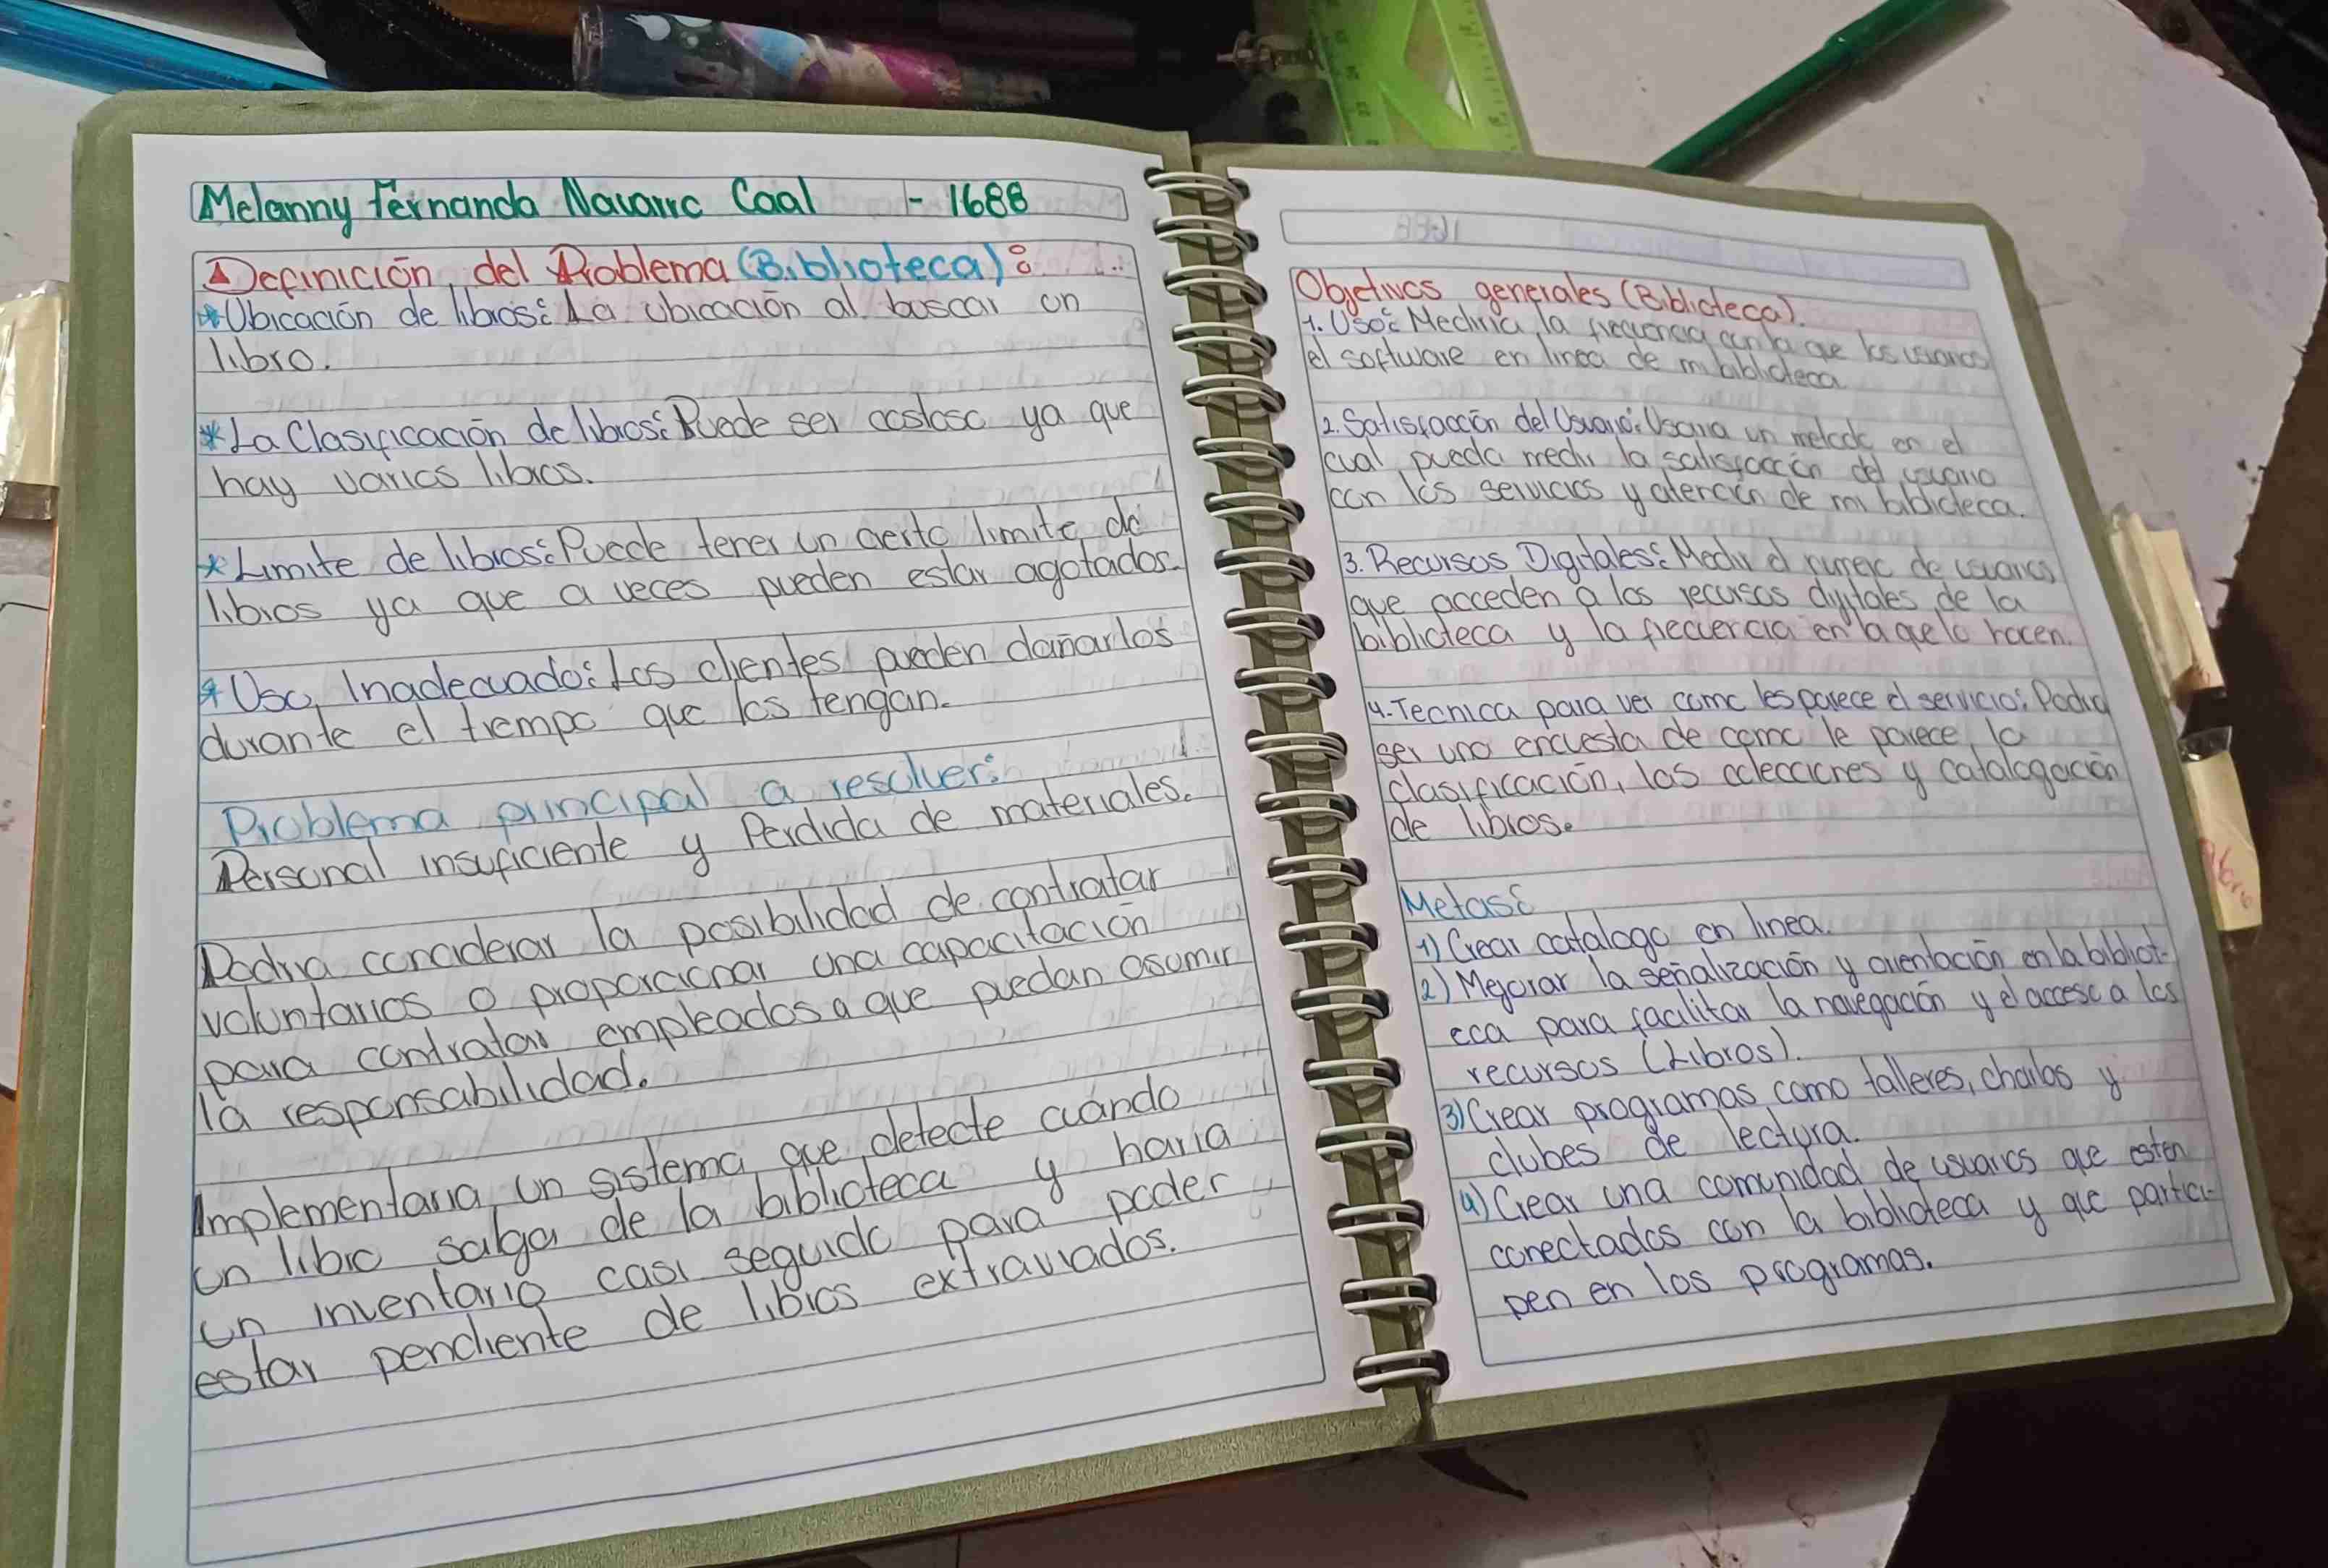 Melanny Fernanda Navarro Caal - 1688
Definición del Problema (Biblioteca):
*Ubicación de libros: La ubicación al buscar un
libro.
*La Clasificación de libros: Puede ser costoso ya que
hay varios libros.
*Limite de libros: Puede tener un cierto limite de
libros ya que a veces pueden estar agotados.
*Uso Inadecuado: Los clientes pueden dañarlos
durante el tiempo que los tengan.
Problema principal a resolver:
Personal insuficiente y Perdida de materiales.
Podria considerar la posibilidad de contratar
voluntarios o proporcionar una capacitación
para contratar empleados a que puedan asumir
la responsabilidad.
Implementaria un sistema que detecte cuándo
un libro salga de la biblioteca y haria
un inventario casi seguido para poder
estar pendiente de libros extraviados.
1688
Objetivos generales (Biblioteca).
1. Uso: Mediria la frecuencia con la que los usuarios
el software en linea de mi biblioteca
2. Satisfacción del Usuario: Usaria un metodo en el
cual pueda medir la satisfacción del usuario
con los servicios y atención de mi biblioteca.
3. Recursos Digitales: Medir el numero de usuarios
que acceden a los recursos digitales de la
biblioteca y la frecuencia en la que lo hacen.
4.-Tecnica para ver como les parece el servicio: Podria
ser una encuesta de como le parece la
clasificación, las colecciones y catalogación
de libros.
Metas:
1) Crear catalogo en linea.
2) Mejorar la señalización y orientación en la bibliot-
eca para facilitar la navegación y el acceso a los
recursos (Libros).
3) Crear programas como talleres, charlas y
clubes de lectura.
4) Crear una comunidad de usuarios que esten
conectados con la biblioteca y que partici-
pen en los programas.